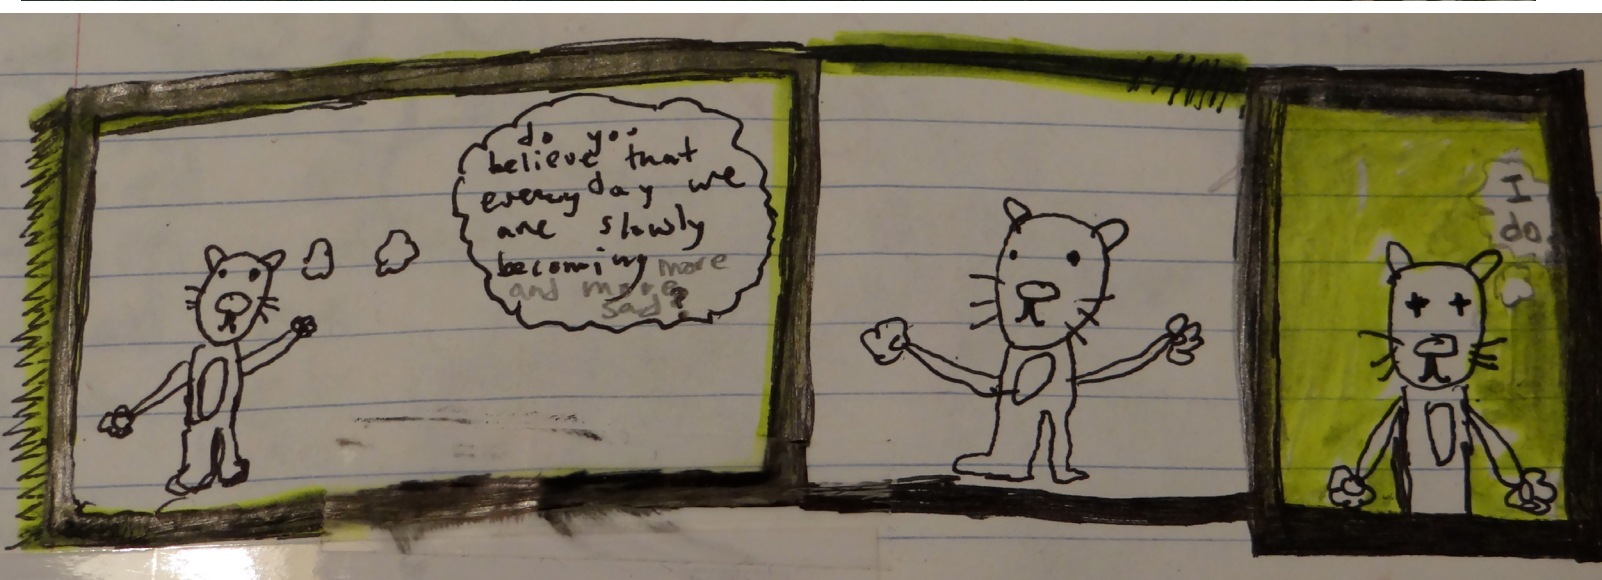 do you
believe that
everyday we
are slowly
becoming more
and more
sad?
I
do.